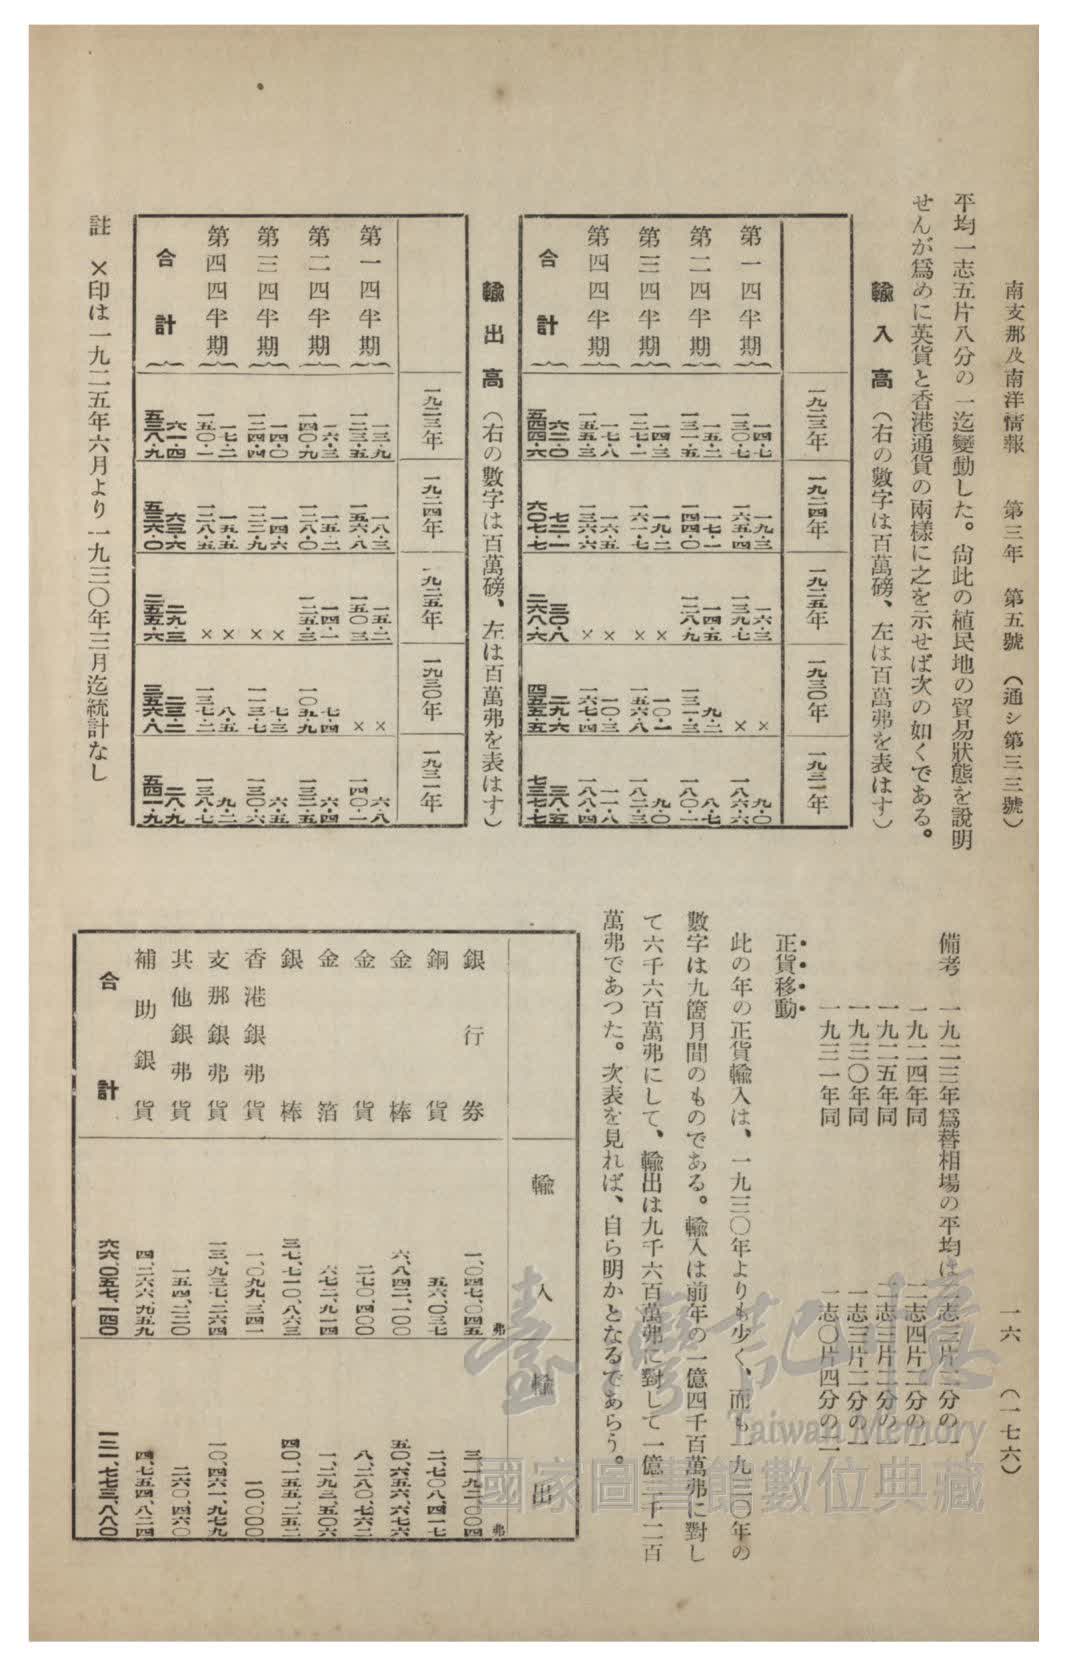 南支那及南洋情報　第三年　第五號　（通シ第三三號）
一六　（一七六）
平均一志五片八分の一迄變動した。尙此の植民地の貿易狀態を說明
せんが爲めに英貨と香港通貨の兩樣に之を示せば次の如くである。
輸入高（右の數字は百萬磅、左は百萬弗を表はす）
一九二三年　一九二四年　一九二五年　一九三〇年　一九三一年
第一四半期
一四・七　一九・三　一六・三　×　九・〇
一三〇・七　一六五・四　一三九・七　×　一八六・六
第二四半期
一五・二　一七・一　一四・五　九・二　八・七
一三一・五　一四四・〇　一二八・九　一三一・三　一八〇・一
第三四半期
一四・三　一九・二　×　一〇・一　九・〇
一二七・一　一六一・七　×　一五六・八　一八二・三
第四四半期
一七・八　一六・五　×　一〇・三　一一・八
一五五・三　一三六・六　×　一六七・四　一八八・四
合計
六二・〇　七二・一　三〇・八　二九・六　三八・五
五四四・六　六〇七・七　二六八・六　四五五・五　七三七・七
輸出高（右の數字は百萬磅、左は百萬弗を表はす）
一九二三年　一九二四年　一九二五年　一九三〇年　一九三一年
第一四半期
一三・九　一八・三　一五・二　×　六・八
一二三・五　一五六・八　一五〇・三　×　一四〇・一
第二四半期
一六・三　一五・二　一四・一　七・四　六・四
一四〇・九　一二八・〇　一二五・三　一〇五・九　一三二・五
第三四半期
一四・〇　一四・六　×　七・三　六・五
一二四・四　一二二・九　×　一一三・七　一三〇・六
第四四半期
一七・二　一五・五　×　八・五　九・二
一五〇・一　一二八・五　×　一三七・二　一三八・七
合計
六一・四　六三・六　二九・三　二三・二　二八・九
五三八・九　五三六・〇　二五五・六　三五六・八　五四一・九
註　×印は一九二五年六月より一九三〇年三月迄統計なし
備考　一九二三年爲替相場の平均は二志三片二分の一
一九二四年同　二志四片二分の一
一九二五年同　二志三片二分の一
一九三〇年同　一志三片二分の一
一九三一年同　一志〇片四分の一
正貨移動
此の年の正貨輸入は、一九三〇年よりも少く、而も一九三〇年の
數字は九箇月間のものである。輸入は前年の一億四千百萬弗に對し
て六千六百萬弗にして、輸出は九千六百萬弗に對して一億二千二百
萬弗であつた。次表を見れば、自ら明かとなるであらう。
輸入　輸出
銀行券　一、〇四七、〇四五弗　三、一九二、〇〇四弗
銅貨　五六〇三七　二、七〇八、四一七
金棒　六、八四二、一〇〇　五〇、六五六、六七六
金貨　二七〇、四〇〇　八、二八〇、七六二
金箔　六七二、九一四　一、二九三、五〇六
銀棒　三七、七一〇、八六三　四〇、一五五、二五二
香港銀弗貨　一、〇九九、三四一　一〇、〇〇〇
支那銀弗貨　一三、九三七、二六四　一〇、四六一、九七九
其他銀弗貨　一五四、二二〇　二六〇、四六〇
補助銀貨　四、二六六、九五九　四、七五四、八二四
合計　六六、〇五七、一四〇　一二一、七七三、八八〇
臺灣記憶
Taiwan Memory
國家圖書館數位典藏